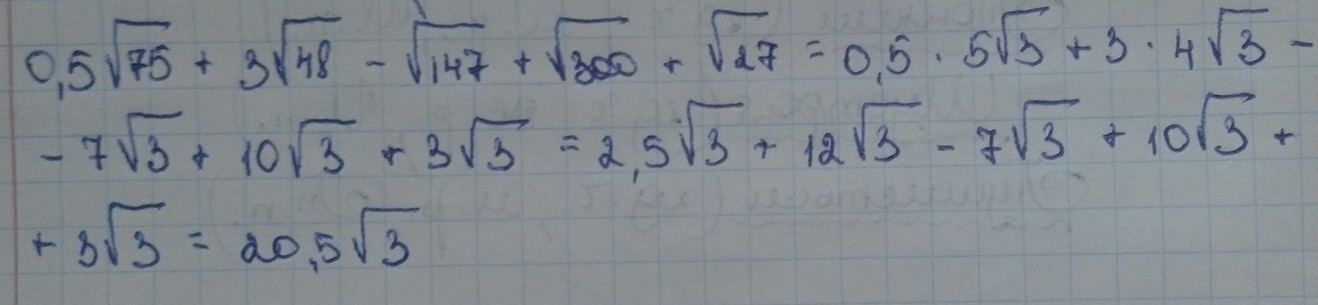 0,5√75 + 3√48 - √147 + √300 + √27 = 0,5 · 5√3 + 3 · 4√3 -
- 7√3 + 10√3 + 3√3 = 2,5√3 + 12√3 - 7√3 + 10√3 +
+ 3√3 = 20,5√3